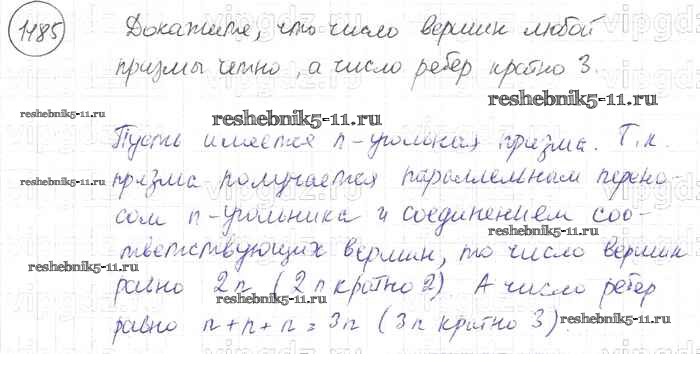 1185 Докажите, что число вершин любой
призмы четно, а число ребер кратно 3.
reshebnik5-11.ru
reshebnik5-11.ru
Пусть имеется n-угольная призма. Т.к.
reshebnik5-11.ru
призма получается параллельным перено-
reshebnik5-11.ru
сом n-угольника и соединением соо-
тветствующих вершин, то число вершин
reshebnik5-11.ru
reshebnik5-11.ru
равно 2n (2n кратно 2). А число ребер
reshebnik5-11.ru
равно n+n+n=3n (3n кратно 3).
reshebnik5-11.ru